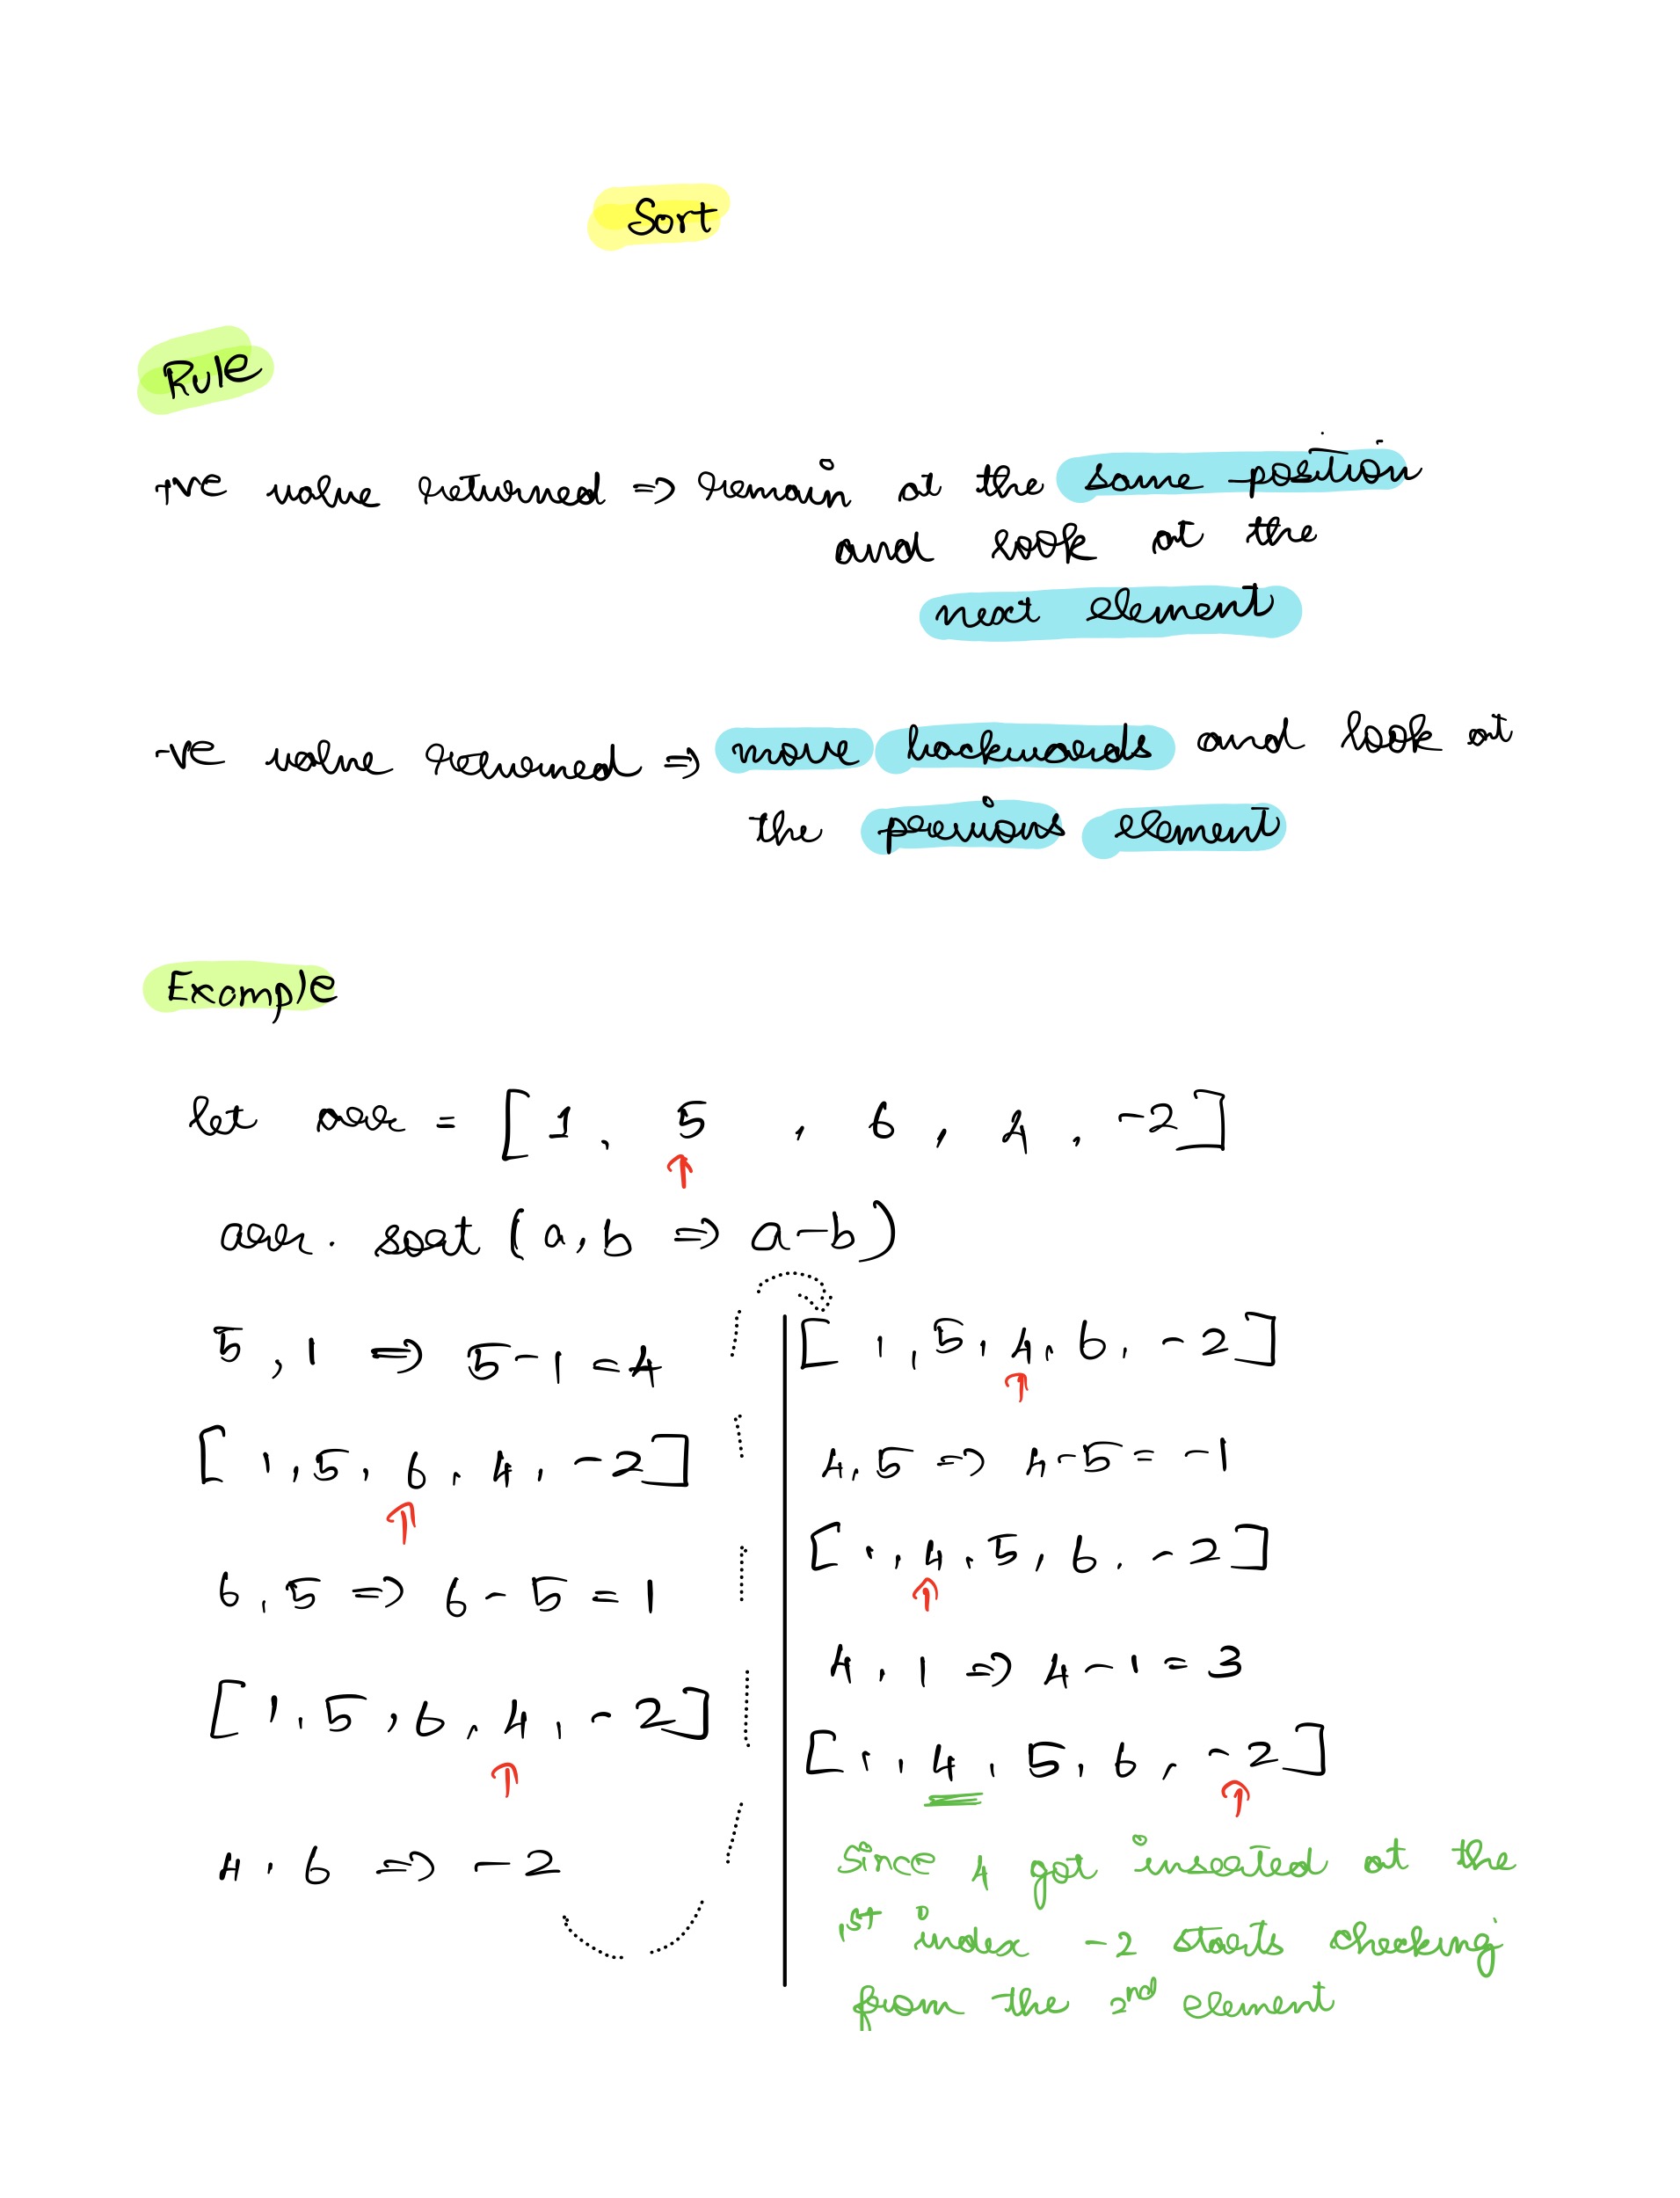 Sort
Rule
+ve value returned => remain at the same position
and look at the
next element
-ve value returned => move backwards and look at
the previous element
Example
let arr = [1, 5, 6, 4, -2]
↑
arr.sort(a,b => a-b)
5,1 => 5-1=4
[1,5,6,4,-2]
↑
6,5 => 6-5=1
[1,5,6,4,-2]
↑
4,6 => -2
[1,5,4,6,-2]
↑
4,5 => 4-5=-1
[1,4,5,6,-2]
↑
4,1 => 4-1=3
[1,4,5,6,-2]
↑
Since 4 got inserted at the
1st index -2 starts checking
from the 2nd element